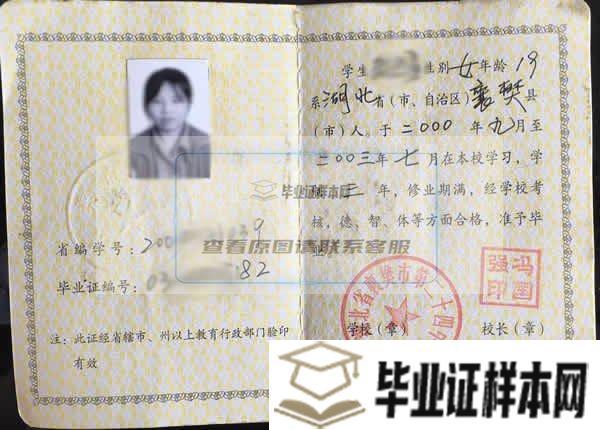 省编学号：200 039
毕业证编号：03 82
注：此证经省辖市、州以上教育行政部门验印
有效
学生 性别女年龄19
系湖北省（市、自治区）襄樊县
（市）人。于二000年九月至
二00三年七月在本校学习，学
三年，修业期满，经学校考
核，德、智、体等方面合格，准予毕
业
学校（章） 校长（章）
冯国强印
北省襄樊市第二十四
毕业证样本网
查看原图请联系客服
毕业证样本网